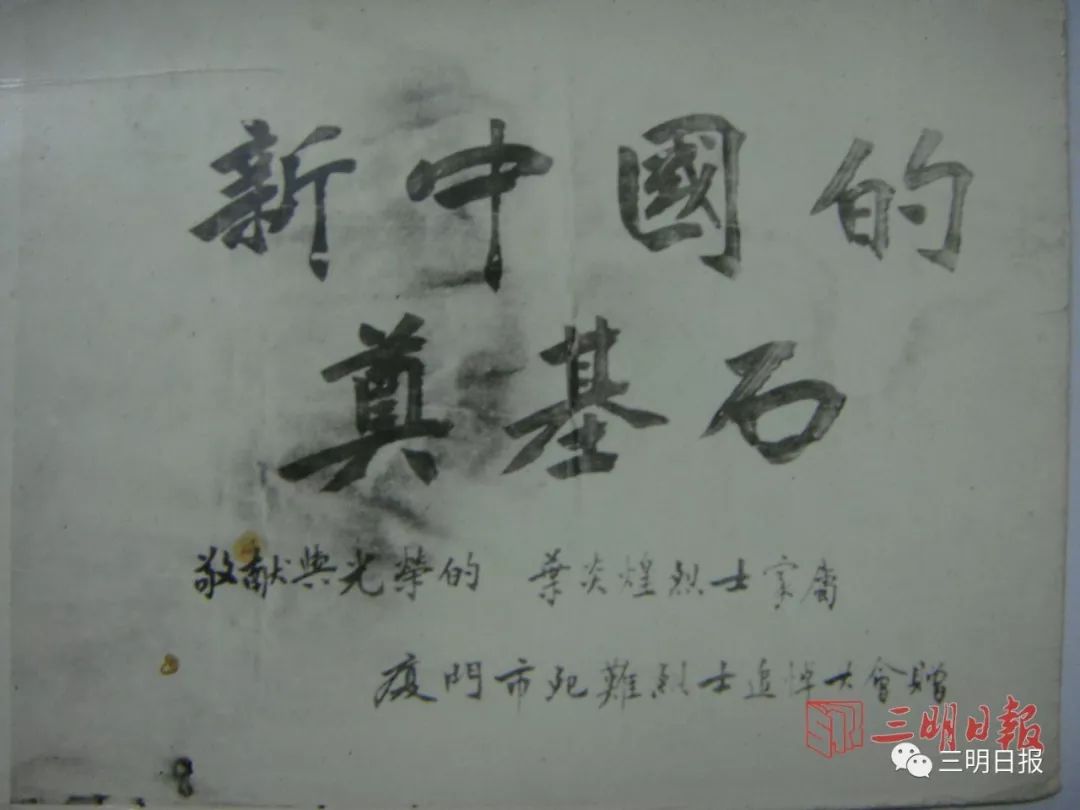 新中國的
奠基石
敬献與光榮的 葉炎煌烈士家屬
厦門市死難烈士追悼大會贈
三明日報
三明日报